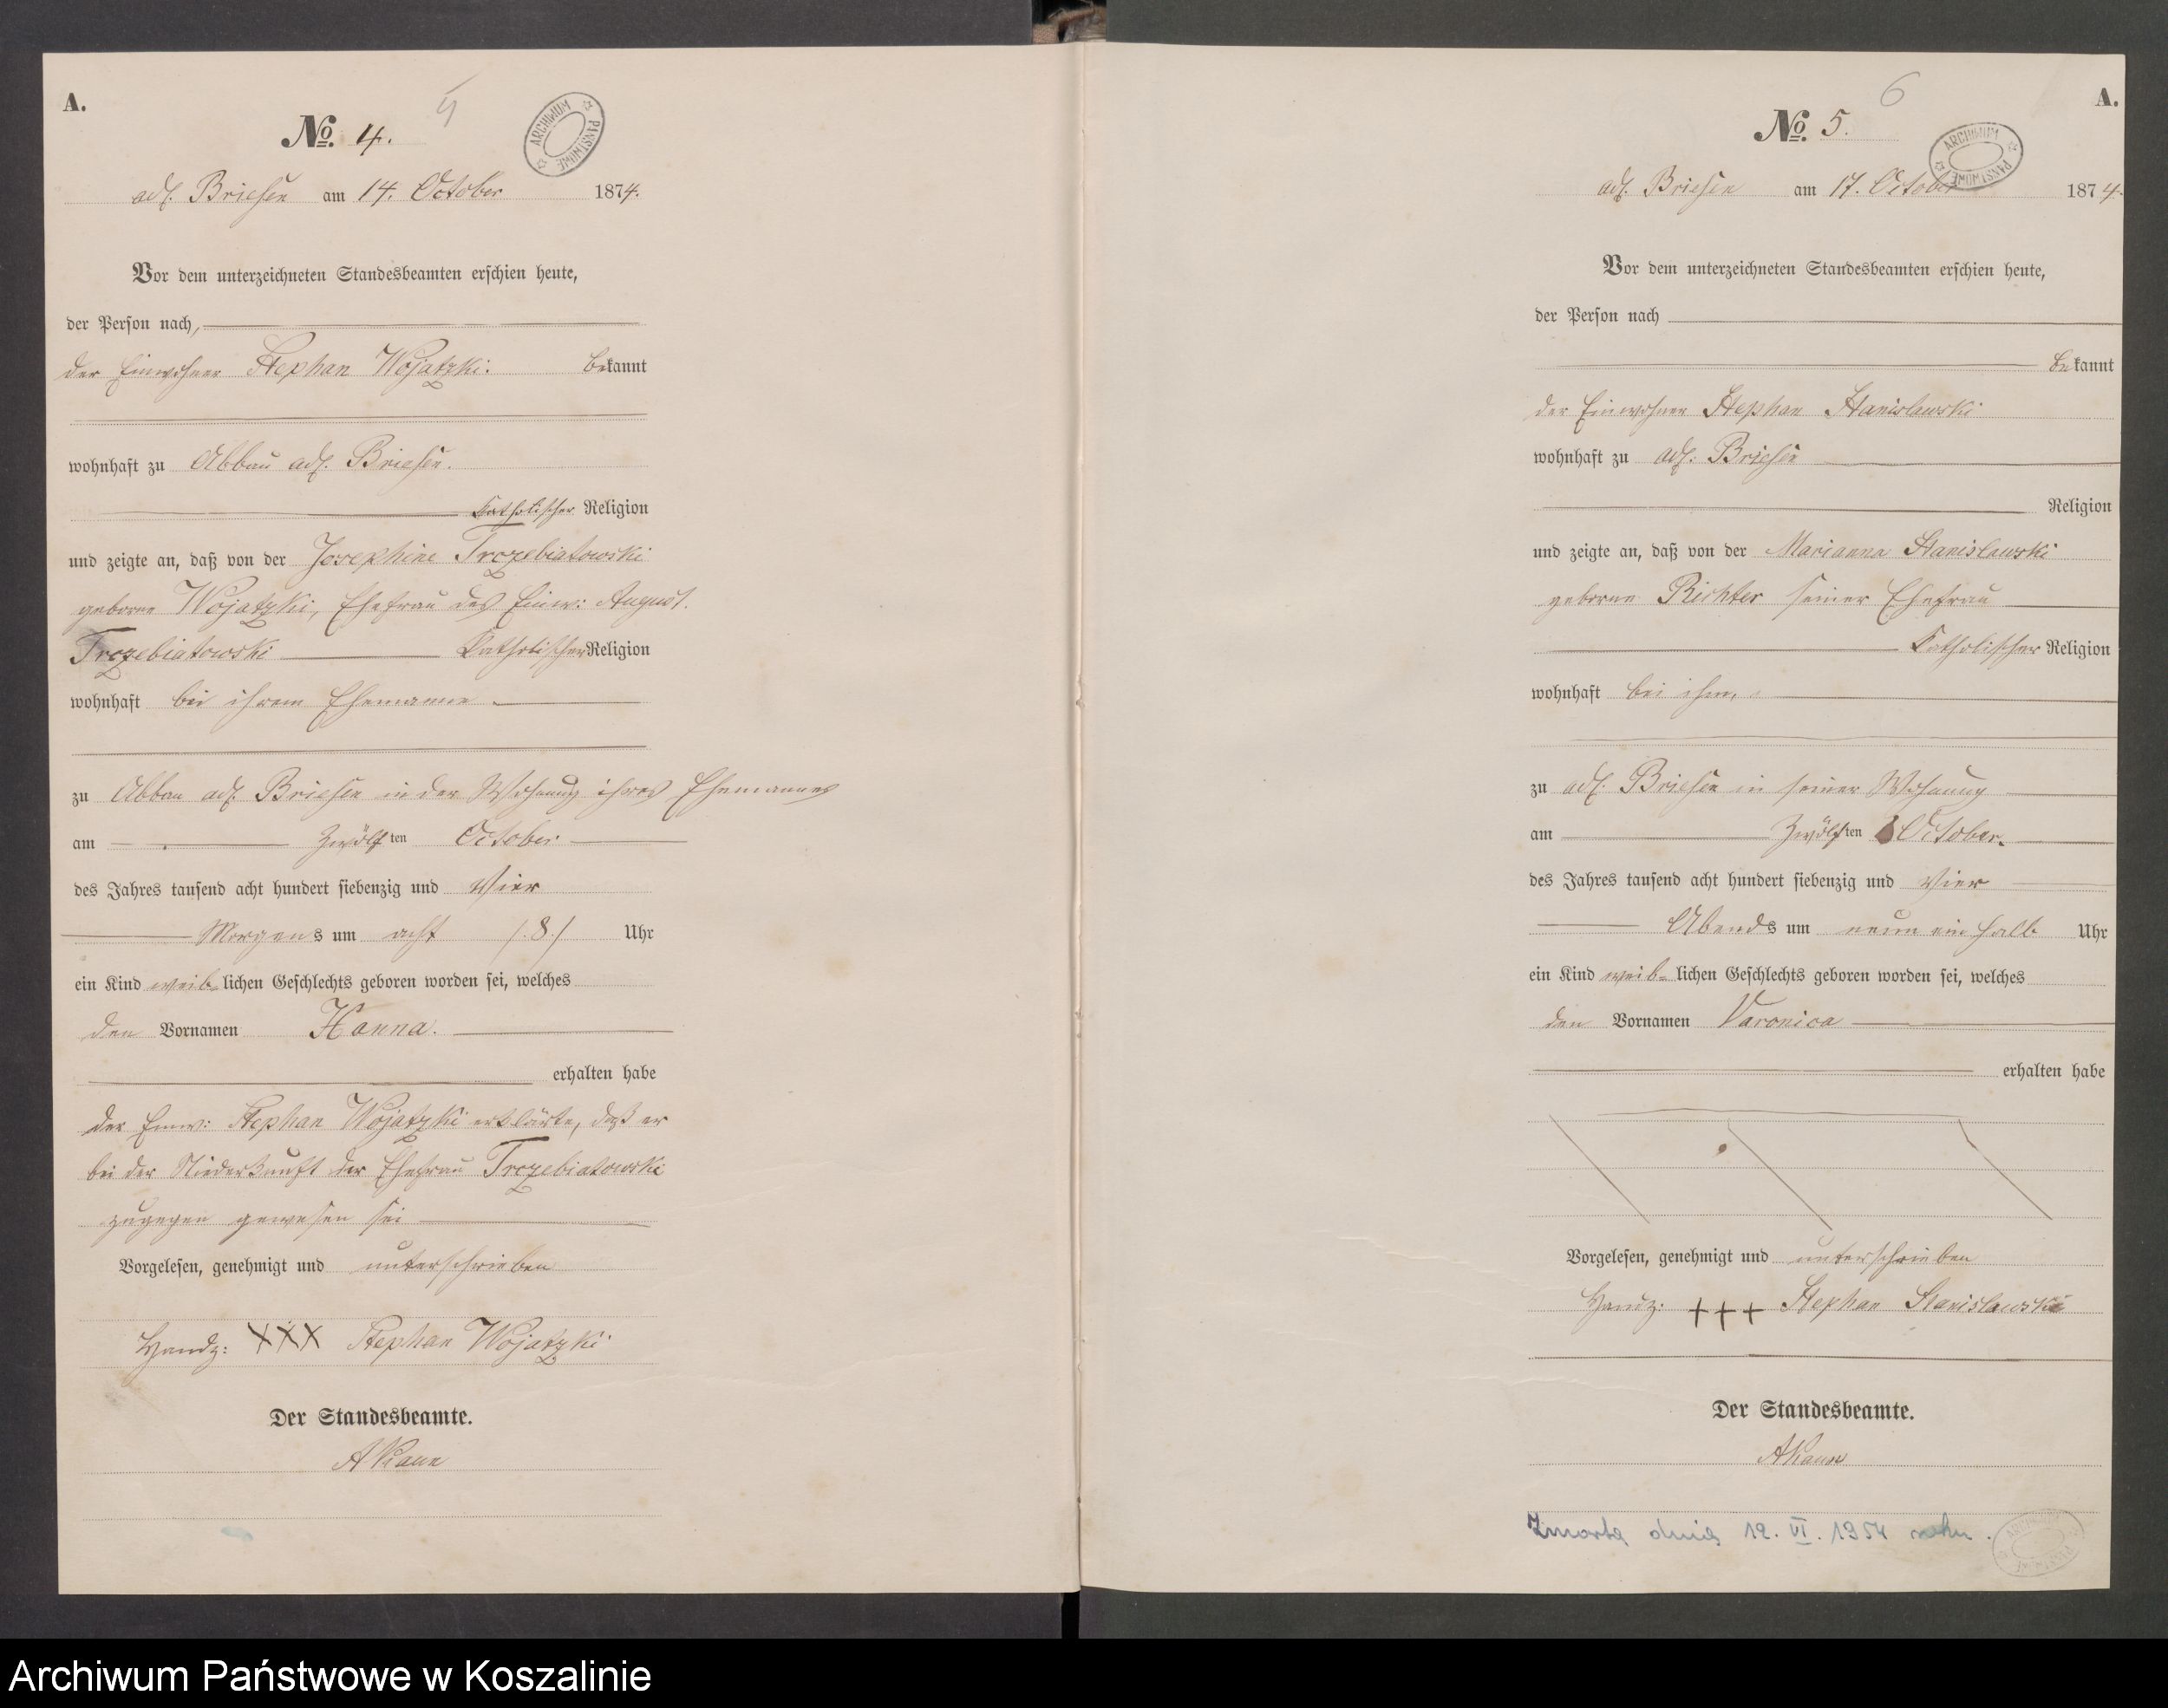 A.
No. 4.
adl. Briesen am 14. October 1874.
Vor dem unterzeichneten Standesbeamten erschien heute,
der Person nach,
der Einwohner Stephan Wojatzki: bekannt
wohnhaft zu Abbau adl. Briesen.
katholischer Religion
und zeigte an, daß von der Josephine Trczebiatowski
geborne Wojatzki, Ehefrau des Einw: August
Trczebiatowski Katholischer Religion
wohnhaft bei ihrem Ehemanne
zu Abbau adl. Briesen in der Wohnung ihres Ehemannes
am Zwölften October
des Jahres tausend acht hundert siebenzig und Vier
Morgens um acht /8./ Uhr
ein Kind weiblichen Geschlechts geboren worden sei, welches
den Vornamen Hanna.
erhalten habe
der Einw: Stephan Wojatzki erklärte, daß er
bei der Niederkunft der Ehefrau Trczebiatowski
zugegen gewesen sei
Vorgelesen, genehmigt und unterschrieben
Handz: XXX Stephan Wojatzki
Der Standesbeamte.
ARCHIWUM PAŃSTWOWE
6
A.
No. 5.
adl. Briesen am 17. October 1874.
Vor dem unterzeichneten Standesbeamten erschien heute,
der Person nach
bekannt
der Einwohner Stephan Stanislawski
wohnhaft zu adl: Briesen
Religion
und zeigte an, daß von der Marianna Stanislawski
geborne Richter seiner Ehefrau
Katholischer Religion
wohnhaft bei ihm,
zu adl. Briesen in seiner Wohnung
am Zwölften October.
des Jahres tausend acht hundert siebenzig und Vier
Abends um neun ein halb Uhr
ein Kind weib=lichen Geschlechts geboren worden sei, welches
den Vornamen Varonica
erhalten habe
Vorgelesen, genehmigt und unterschrieben
Handz: +++ Stephan Stanislawski
Der Standesbeamte.
Zmarła dnia 12. VI. 1954 roku.
ARCHIWUM PAŃSTWOWE
Archiwum Państwowe w Koszalinie